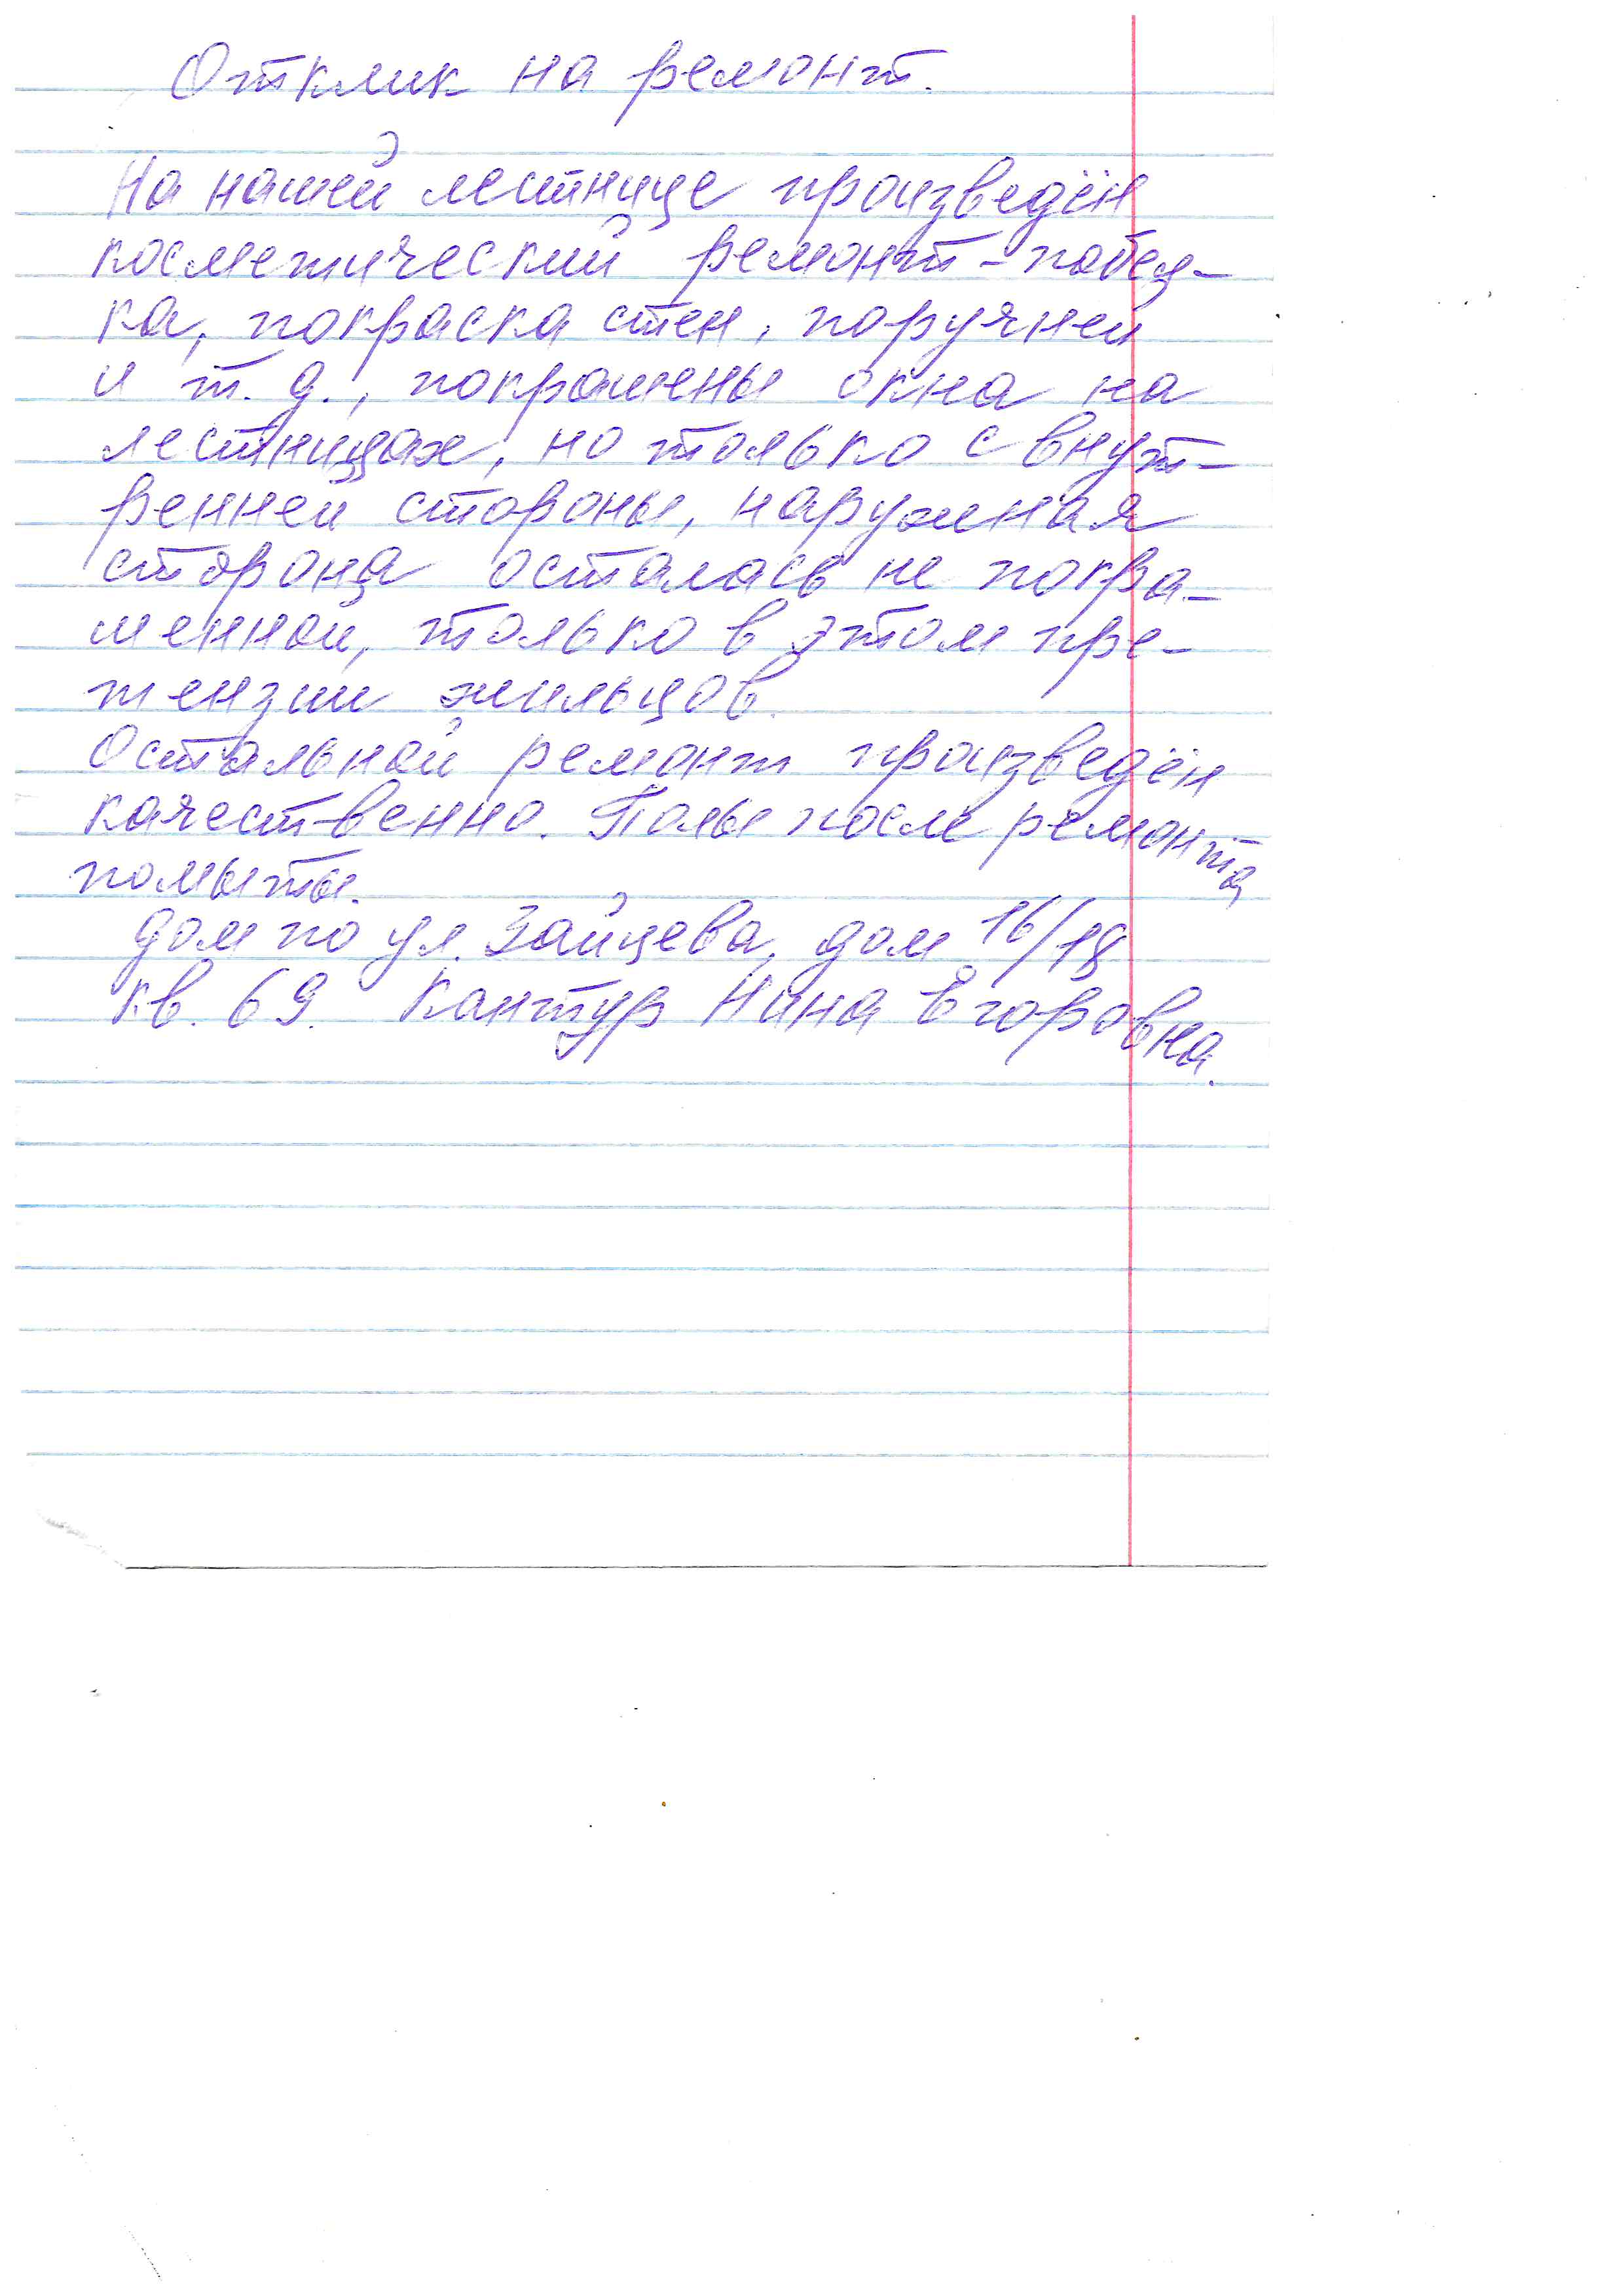 Отклик на ремонт.
На нашей лестнице произведён
косметический ремонт - побел-
ка, покраска стен, поручней
и т. д., покрашены окна на
лестницах, но только с внут-
ренней стороны, наружная
сторона осталась не покра-
шенной, только в этом пре-
тензии жильцов.
Остальной ремонт произведён
качественно. Полы после ремонта
помыты.
дом по ул. Зайцева, дом 16/18
кв. 69. Кантур Нина Егоровна.